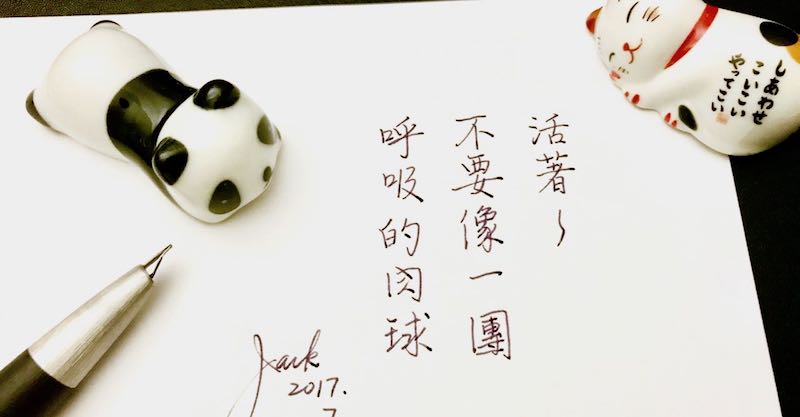 活著～
不要像一團
呼吸的肉球
Jack
2017.
7
しあわせ
こいこい
やってこい